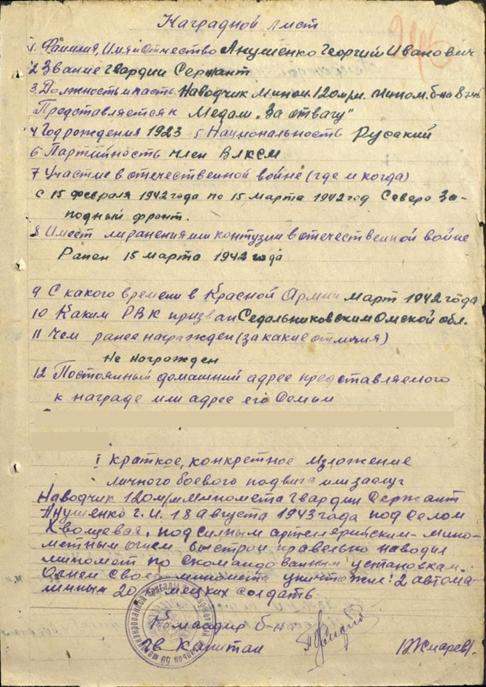 Наградной лист
1. Фамилия, Имя и отчество Анушенко Георгий Иванович
2 Звание Гвардии Сержант
3. Должность и часть Наводчик Мином. 120м/м. Мином. б-на 8
Представляется к Медали "За отвагу"
4 Год рождения 1923 5 Национальность Русский
6 Партийность член ВЛКСМ
7 Участие в отечественной войне (где и когда)
с 15 февраля 1942 года по 15 Марта 1942 год Северо За-
падный фронт.
8 Имеет ли ранения или контузии в отечественной войне
Ранен 15 марта 1942 года
9 С какого времени в Красной Армии март 1942 года
10 Каким РВК призван Седельниковским Омской обл.
11 Чем ранее награжден (за какие отличия)
Не награжден
12 Постоянный домашний адрес представляемого
к награде или адрес его семьи
I краткое, конкретное изложение
личного боевого подвига или заслуг
Наводчик 120м/м Миномета Гвардии Сержант
Анушенко Г. И. 18 августа 1943 года под селом
под сильным артелерийским-мино-
метным огнем быстро и правельно наводил
миномет по скомандованным установкам.
Огнем своего миномета уничтожил: 2 автома-
шины и 20 немецких солдать
Командир б-на
Гв Капитан